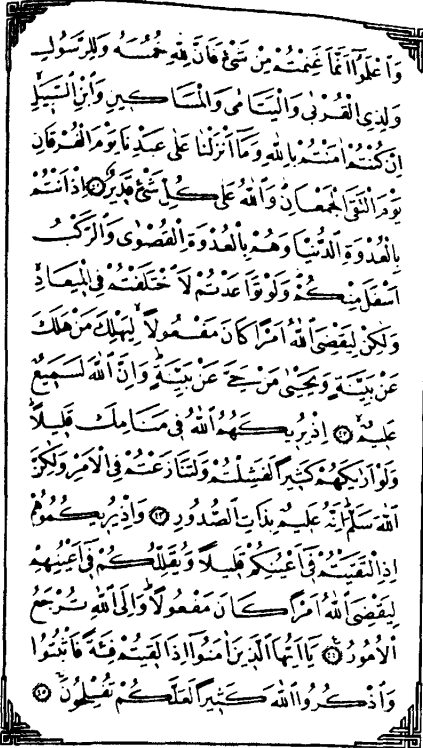 وَاعْلَمُٓوا اَنَّمَا غَنِمْتُمْ مِنْ شَيْءٍ فَاَنَّ لِلّٰهِ خُمُسَهُ وَلِلرَّسُولِ
وَلِذِي الْقُرْبٰى وَالْيَتَامٰى وَالْمَسَاكِينِ وَابْنِ السَّبِيلِ
اِنْ كُنْتُمْ اٰمَنْتُمْ بِاللّٰهِ وَمَٓا اَنْزَلْنَا عَلٰى عَبْدِنَا يَوْمَ الْفُرْقَانِ
يَوْمَ الْتَقَى الْجَمْعَانِ وَاللّٰهُ عَلٰى كُلِّ شَيْءٍ قَدِيرٌ ﴿٤١﴾ اِذْ اَنْتُمْ
بِالْعُدْوَةِ الدُّنْيَا وَهُمْ بِالْعُدْوَةِ الْقُصْوٰى وَالرَّكْبُ
اَسْفَلَ مِنْكُمْ وَلَوْ تَوَاعَدْتُمْ لَاخْتَلَفْتُمْ فِي الْمِيعَادِ
وَلٰكِنْ لِيَقْضِيَ اللّٰهُ اَمْرًا كَانَ مَفْعُولًا لِيَهْلِكَ مَنْ هَلَكَ
عَنْ بَيِّنَةٍ وَيَحْيٰى مَنْ حَيَّ عَنْ بَيِّنَةٍ وَاِنَّ اللّٰهَ لَسَمِيعٌ
عَلِيمٌ ﴿٤٢﴾ اِذْ يُرِيكَهُمُ اللّٰهُ فِي مَنَامِكَ قَلِيلًا
وَلَوْ اَرٰيكَهُمْ كَثِيرًا لَفَشِلْتُمْ وَلَتَنَازَعْتُمْ فِي الْاَمْرِ وَلٰكِنَّ
اللّٰهَ سَلَّمَ اِنَّهُ عَلِيمٌ بِذَاتِ الصُّدُورِ ﴿٤٣﴾ وَاِذْ يُرِيكُمُوهُمْ
اِذِ الْتَقَيْتُمْ فِٓي اَعْيُنِكُمْ قَلِيلًا وَيُقَلِّلُكُمْ فِٓي اَعْيُنِهِمْ
لِيَقْضِيَ اللّٰهُ اَمْرًا كَانَ مَفْعُولًا وَاِلَى اللّٰهِ تُرْجَعُ
الْاُمُورُ ﴿٤٤﴾ يَٓا اَيُّهَا الَّذِينَ اٰمَنُٓوا اِذَا لَقِيتُمْ فِئَةً فَاثْبُتُوا
وَاذْكُرُوا اللّٰهَ كَثِيرًا لَعَلَّكُمْ تُفْلِحُونَ ﴿٤٥﴾